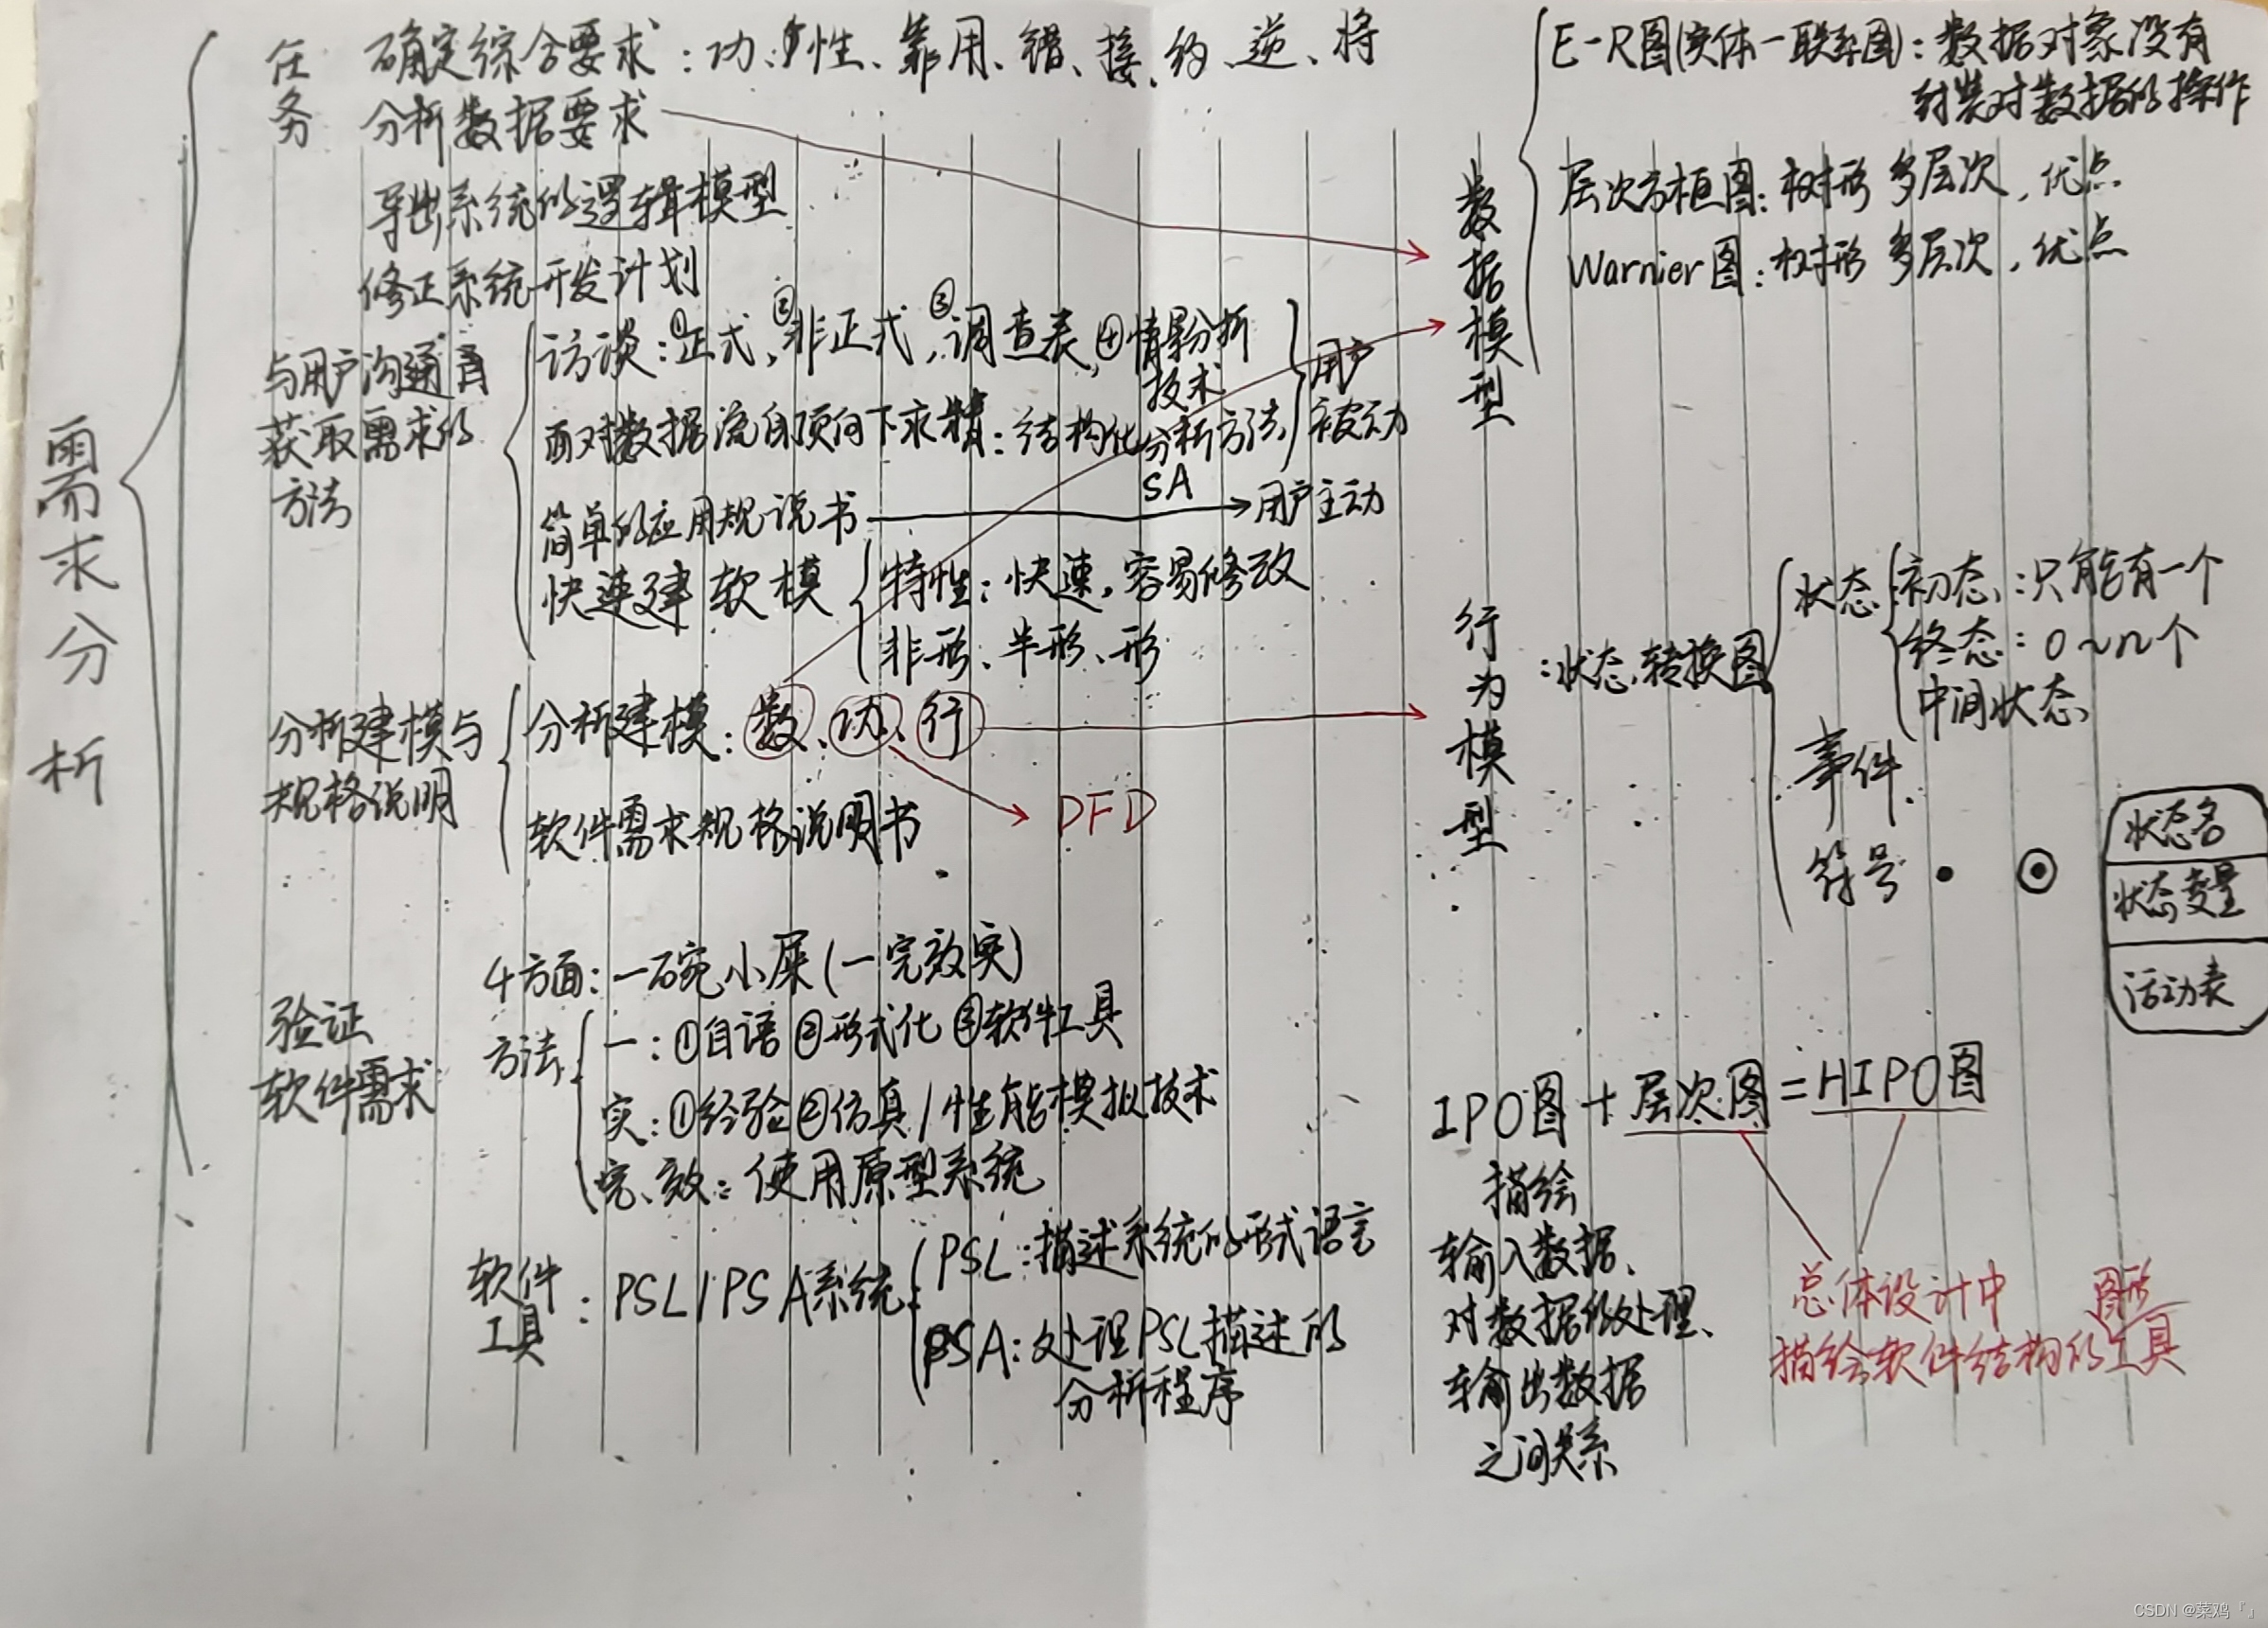 需求分析
任务
确定综合要求：功、性、靠用、错、接、约、逆、将
分析数据要求
导出系统的逻辑模型
修正系统开发计划
与用户沟通
获取需求的
方法
访谈：①正式，②非正式，③调查表，④情景分析
技术
面对数据流自顶向下求精：结构化
分析方法
SA
用户
被动
简单的应用规说书
用户主动
快速建软模
特性：快速，容易修改
非形、半形、形
分析建模与
规格说明
分析建模：数、功、行
DFD
软件需求规格说明书
验证
软件需求
4方面：一碗小屎(一完效实)
方法
一：①自语②形式化③软件工具
实：①经验②仿真/性能模拟技术
完、效：使用原型系统
软件
工具
：PSL/PSA系统：
PSL：描述系统的形式语言
PSA：处理PSL描述的
分析程序
数据模型
E-R图(实体-联系图)：数据对象没有
封装对数据的操作
层次方框图：树形 多层次，优点
Warnier图：树形 多层次，优点
行为模型
：状态转换图
状态
初态：只能有一个
终态：0~n个
中间状态
事件
符号
状态名
状态变量
活动表
IPO图+层次图=HIPO图
描绘
输入数据、
对数据的处理、
输出数据
之间关系
总体设计中
图形
描绘软件结构的工具
CSDN @菜鸡『』